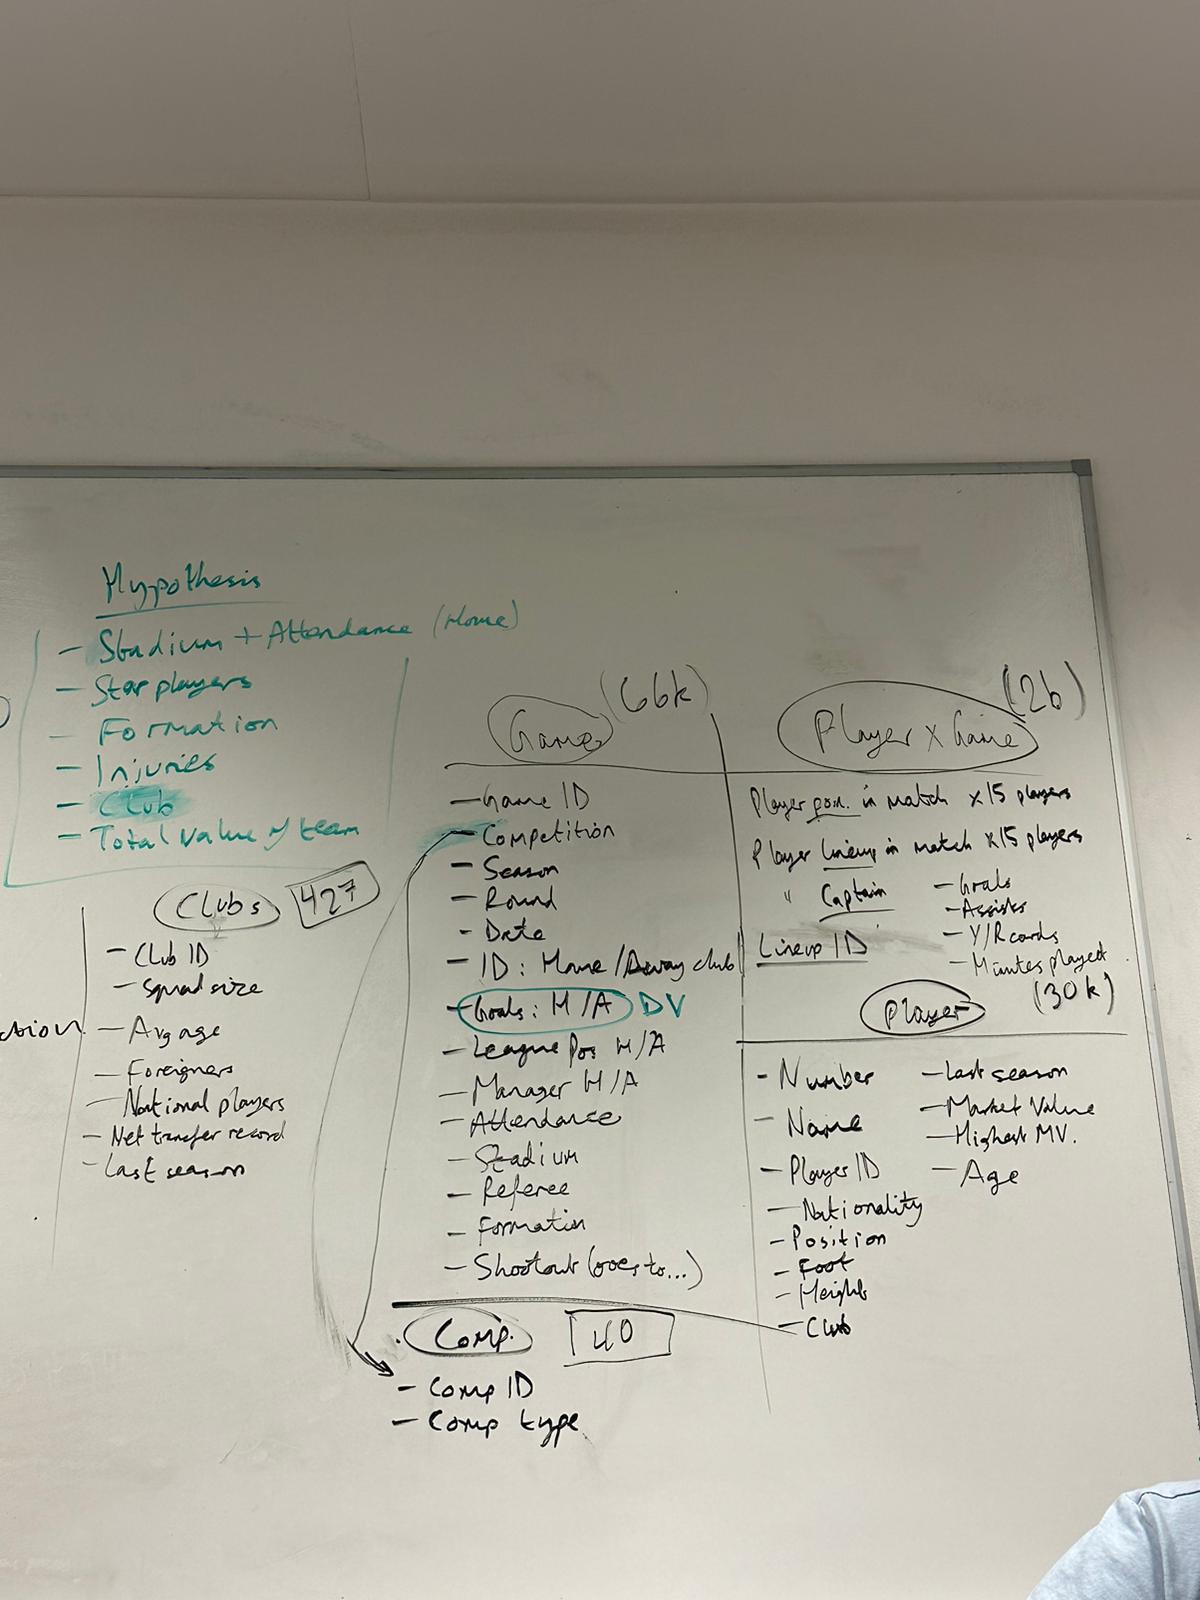 Hypothesis
- Stadium + Attendance (Home)
- Star players
- Formation
- Injuries
- Club
- Total value of team
Clubs 427
- Club ID
- Squad size
- Avg age
- Foreigners
- National players
- Net transfer record
- Last season
ction
Game (66k)
- Game ID
- Competition
- Season
- Round
- Date
- ID: Home/Away club
- Goals: H/A DV
- League Pos H/A
- Manager H/A
- Attendance
- Stadium
- Referee
- Formation
- Shootout (goes to...)
Comp. 40
- Comp ID
- Comp type
Player x Game
Player pos. in match x15 players
Player lineup in match x15 players
" Captain
Lineup ID
- Goals
- Assists
- Y/R cards
- Minutes played
Player (30k)
- Number
- Name
- Player ID
- Nationality
- Position
- Foot
- Height
- Club
- Last season
- Market Value
- Highest MV.
- Age